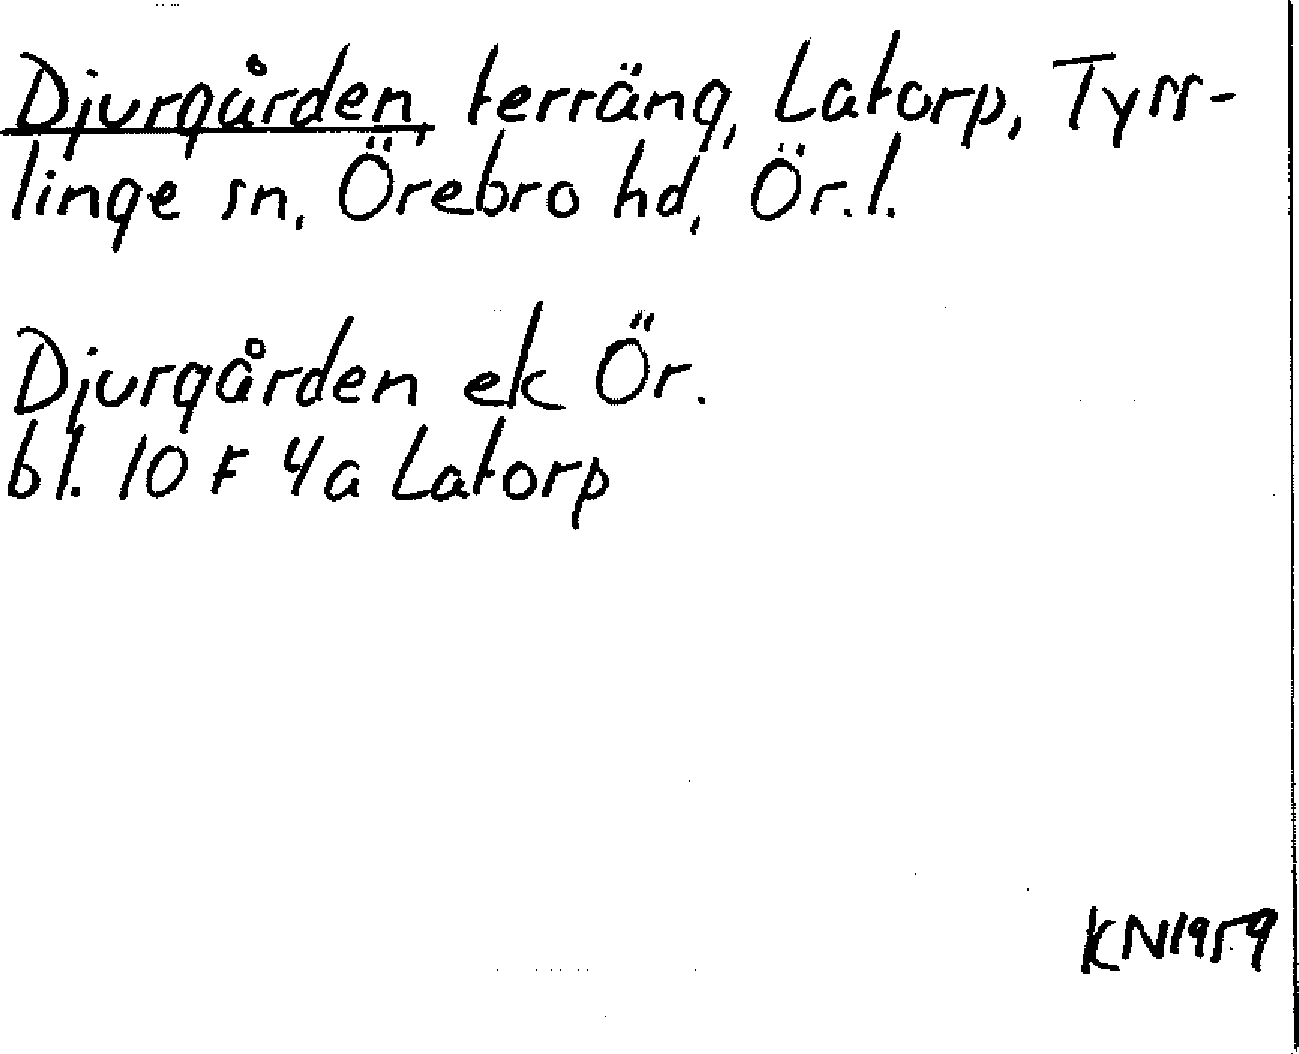 Djurgården, terräng, Latorp, Tyss-
linge sn, Örebro hd, Ör.l.
Djurgården ek Ör.
bl. 10 F 4a Latorp
KN1959